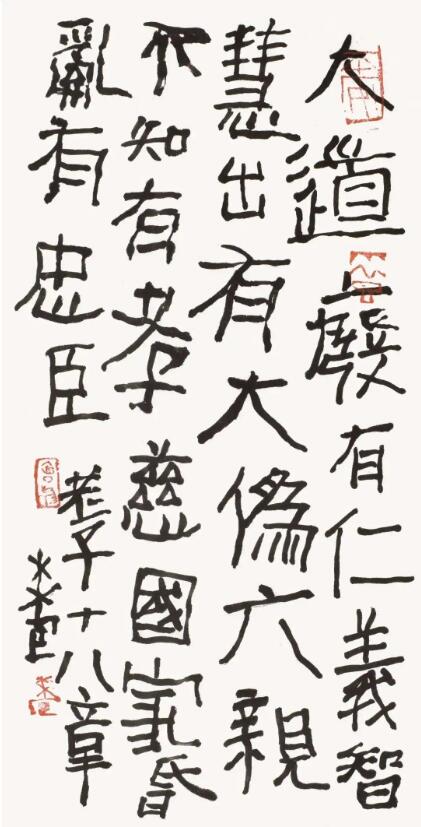 大道廢有仁義智
慧出有大僞六親
不知有孝慈國家昏
亂有忠臣
老子十八章